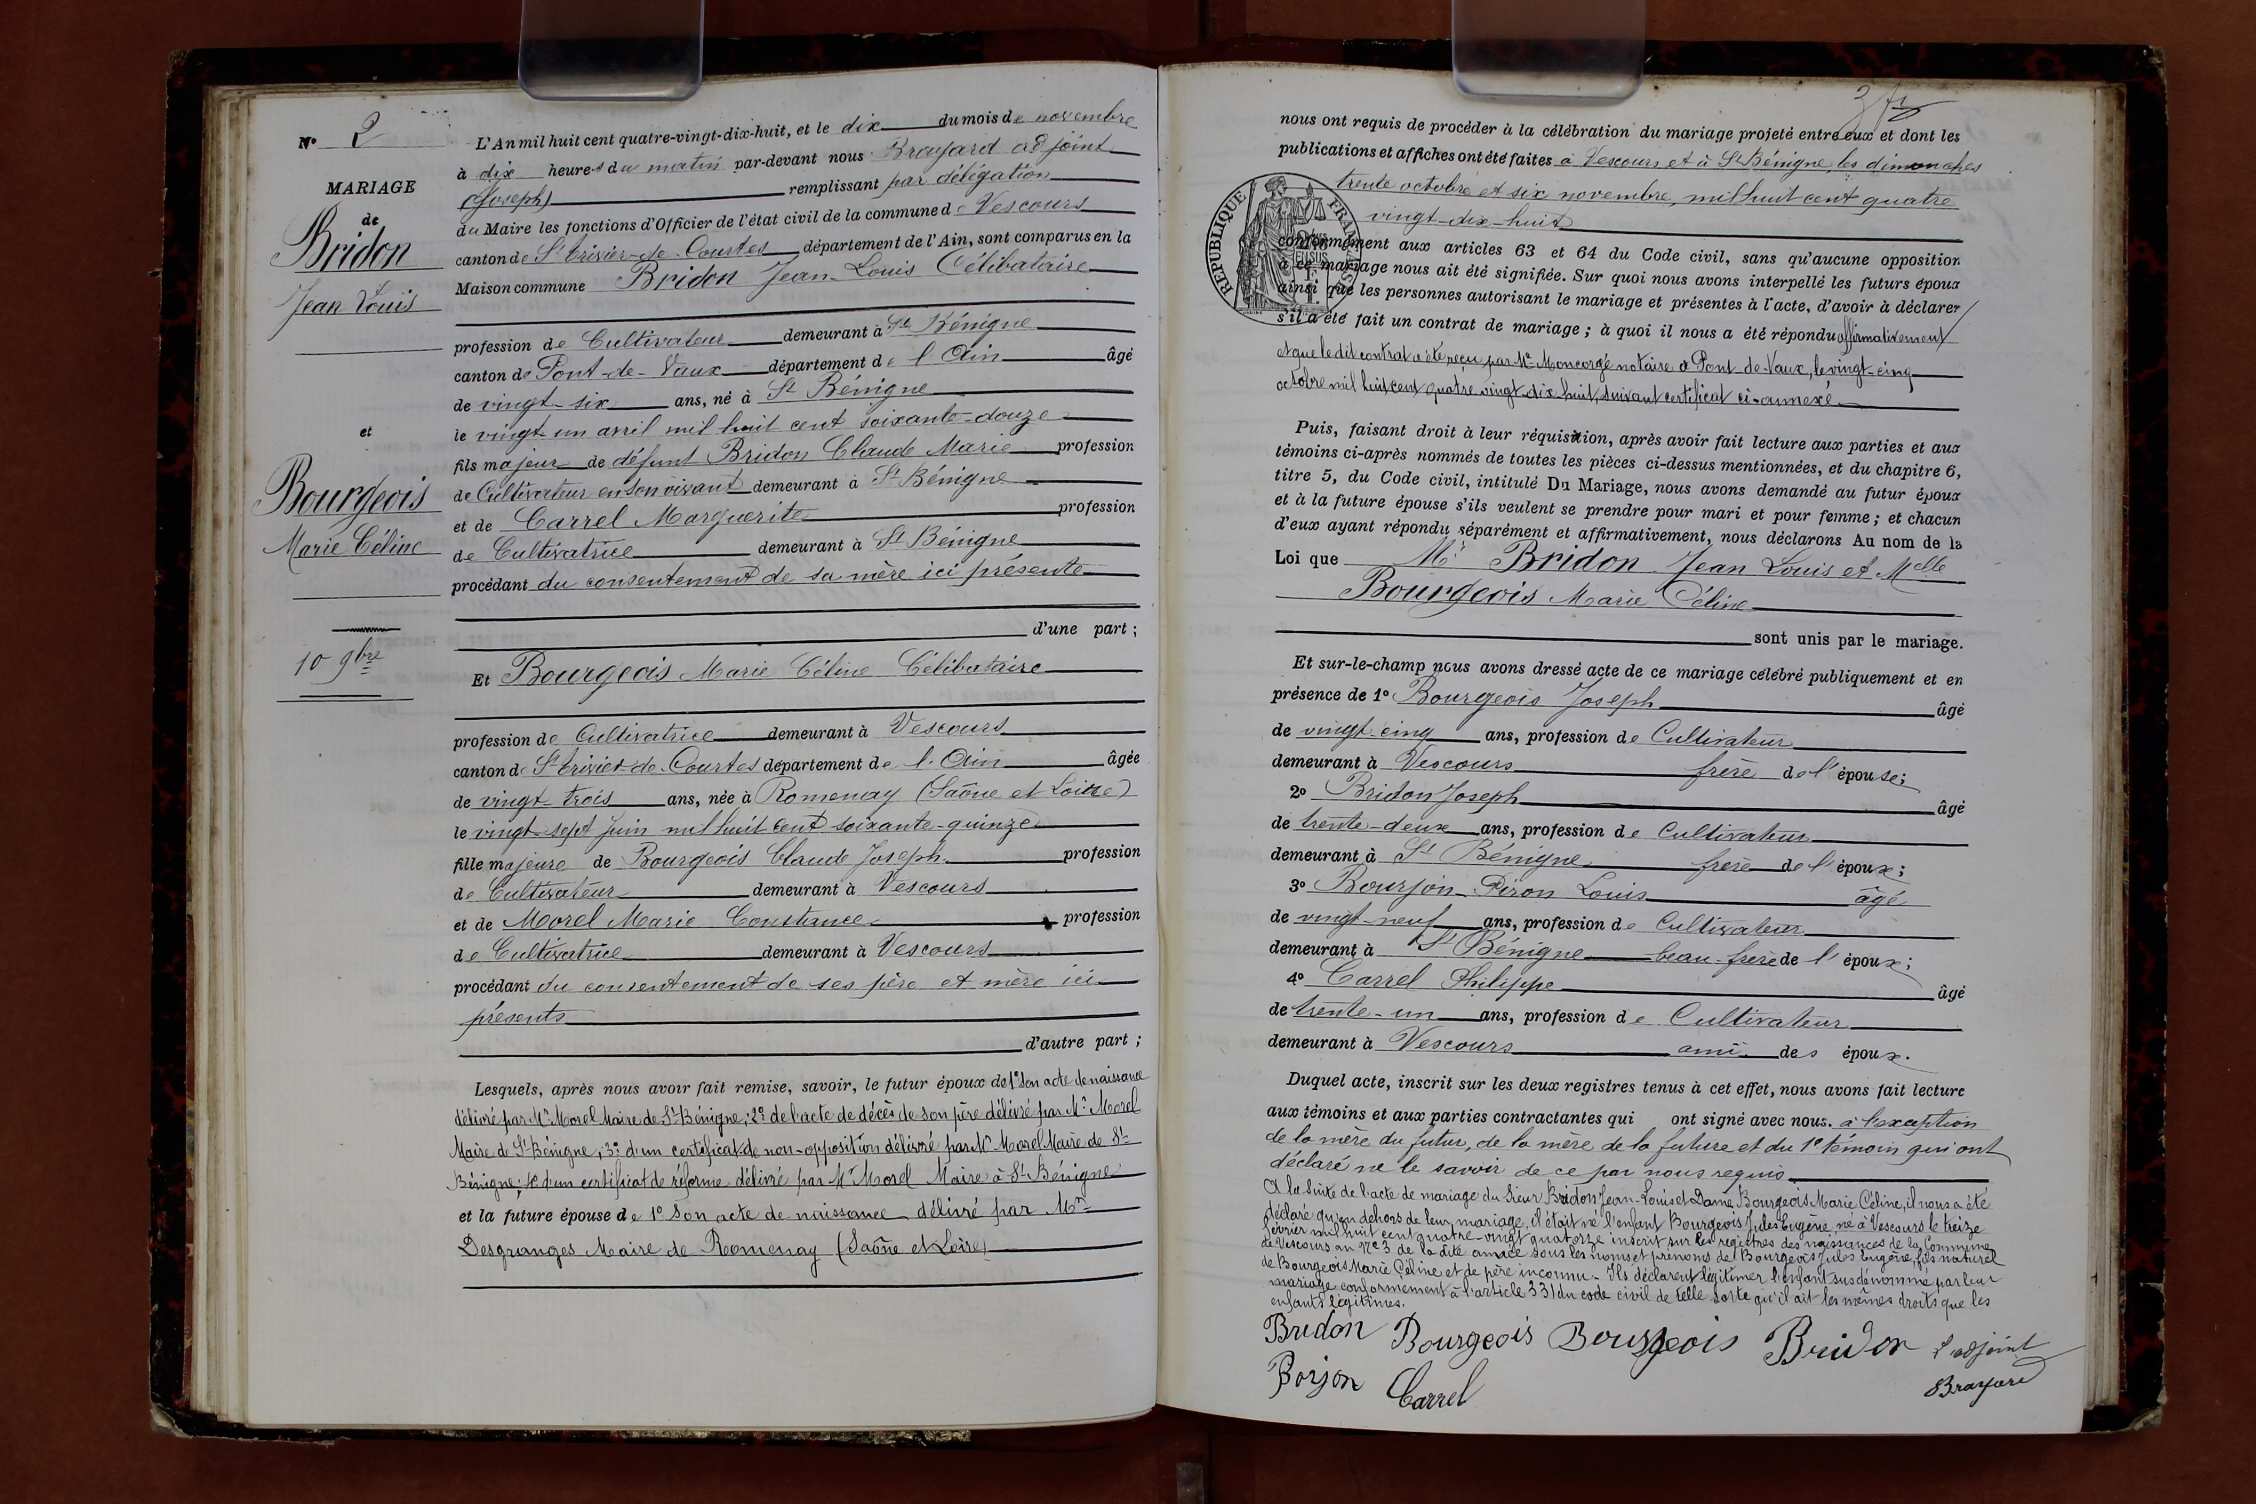 N° 2
MARIAGE
de
Bridon
Jean Louis
et
Bourgeois
Marie Céline
10 9bre
L'An mil huit cent quatre-vingt-dix-huit, et le dix du mois de novembre
à dix heures du matin par-devant nous Brayard adjoint
(Joseph) remplissant par délégation
du Maire les fonctions d'Officier de l'état civil de la commune de Vescours
canton de St Trivier-de-Courtes département de l'Ain, sont comparus en la
Maison commune Bridon Jean-Louis Célibataire
profession de Cultivateur demeurant à St Bénigne
canton de Pont-de-Vaux département de l'Ain âgé
de vingt-six ans, né à St Bénigne
le vingt-un avril mil huit cent soixante-douze
fils majeur de défunt Bridon Claude Marie profession
de Cultivateur en son vivant demeurant à St Bénigne
et de Carrel Marguerite profession
de Cultivatrice demeurant à St Bénigne
procédant du consentement de sa mère ici présente
d'une part ;
Et Bourgeois Marie Céline Célibataire
profession de Cultivatrice demeurant à Vescours
canton de St Trivier-de-Courtes département de l'Ain âgée
de vingt-trois ans, née à Romenay (Saône et Loire)
le vingt-sept Juin mil huit cent soixante-quinze
fille majeure de Bourgeois Claude Joseph profession
de Cultivateur demeurant à Vescours
et de Morel Marie Constance profession
de Cultivatrice demeurant à Vescours
procédant du consentement de ses père et mère ici
présents
d'autre part ;
Lesquels, après nous avoir fait remise, savoir, le futur époux de 1° son acte de naissance
délivré par Mr Morel Maire de St-Bénigne; 2° de l'acte de décès de son père délivré par Mr Morel
Maire de St Bénigne, 3° d'un certificat de non-opposition délivré par Mr Morel Maire de St
Bénigne; 4° d'un certificat de réforme délivré par Mr Morel Maire à St Bénigne
et la future épouse de 1° son acte de naissance délivré par Mr
Desgranges Maire de Romenay (Saône et Loire)
nous ont requis de procéder à la célébration du mariage projeté entre eux et dont les
publications et affiches ont été faites à Vescours et à St Bénigne, les dimanches
trente octobre et six novembre, mil huit cent quatre
vingt-dix-huit
RÉPUBLIQUE FRANÇAISE
conformément aux articles 63 et 64 du Code civil, sans qu'aucune opposition
à ce mariage nous ait été signifiée. Sur quoi nous avons interpellé les futurs époux
ainsi que les personnes autorisant le mariage et présentes à l'acte, d'avoir à déclarer
s'il a été fait un contrat de mariage ; à quoi il nous a été répondu affirmativement
et que le dit contrat a été reçu par Me Moncorgé notaire à Pont-de-Vaux, le vingt-cinq
octobre mil huit cent quatre-vingt-dix-huit, suivant certificat ci-annexé.
Puis, faisant droit à leur réquisition, après avoir fait lecture aux parties et aux
témoins ci-après nommés de toutes les pièces ci-dessus mentionnées, et du chapitre 6,
titre 5, du Code civil, intitulé Du Mariage, nous avons demandé au futur époux
et à la future épouse s'ils veulent se prendre pour mari et pour femme ; et chacun
d'eux ayant répondu séparément et affirmativement, nous déclarons Au nom de la
Loi que Mr Bridon Jean Louis et Melle
Bourgeois Marie Céline
sont unis par le mariage.
Et sur-le-champ nous avons dressé acte de ce mariage célébré publiquement et en
présence de 1° Bourgeois Joseph âgé
de vingt-cinq ans, profession de Cultivateur
demeurant à Vescours frère de l'épouse;
2° Bridon Joseph âgé
de trente-deux ans, profession de Cultivateur
demeurant à St Bénigne frère de l'époux;
3° Bourjon-Piron Louis âgé
de vingt-neuf ans, profession de Cultivateur
demeurant à St Bénigne beau-frère de l'époux;
4° Carrel Philippe âgé
de trente-un ans, profession de Cultivateur
demeurant à Vescours ami des époux.
Duquel acte, inscrit sur les deux registres tenus à cet effet, nous avons fait lecture
aux témoins et aux parties contractantes qui ont signé avec nous. à l'exception
de la mère du futur, de la mère de la future et du 1er témoin qui ont
déclaré ne le savoir de ce par nous requis
A la suite de l'acte de mariage du Sieur Bridon Jean-Louis et Dame Bourgeois Marie Céline, il nous a été
déclaré qu'en dehors de leur mariage, il était né l'enfant Bourgeois Jules Eugène, né à Vescours le treize
février mil huit cent quatre-vingt quatorze inscrit sur les registres des naissances de la Commune
de Vescours au N° 3 de la dite année sous les noms et prénoms de Bourgeois Jules Eugène, fils naturel
de Bourgeois Marie Céline et de père inconnu. Ils déclarent légitimer l'enfant susdénommé par leur
mariage conformément à l'article 331 du code civil de telle sorte qu'il ait les mêmes droits que les
enfants légitimes.
Bridon Bourgeois Bourgeois Bridon L'adjoint
Borjon Carrel Brayard